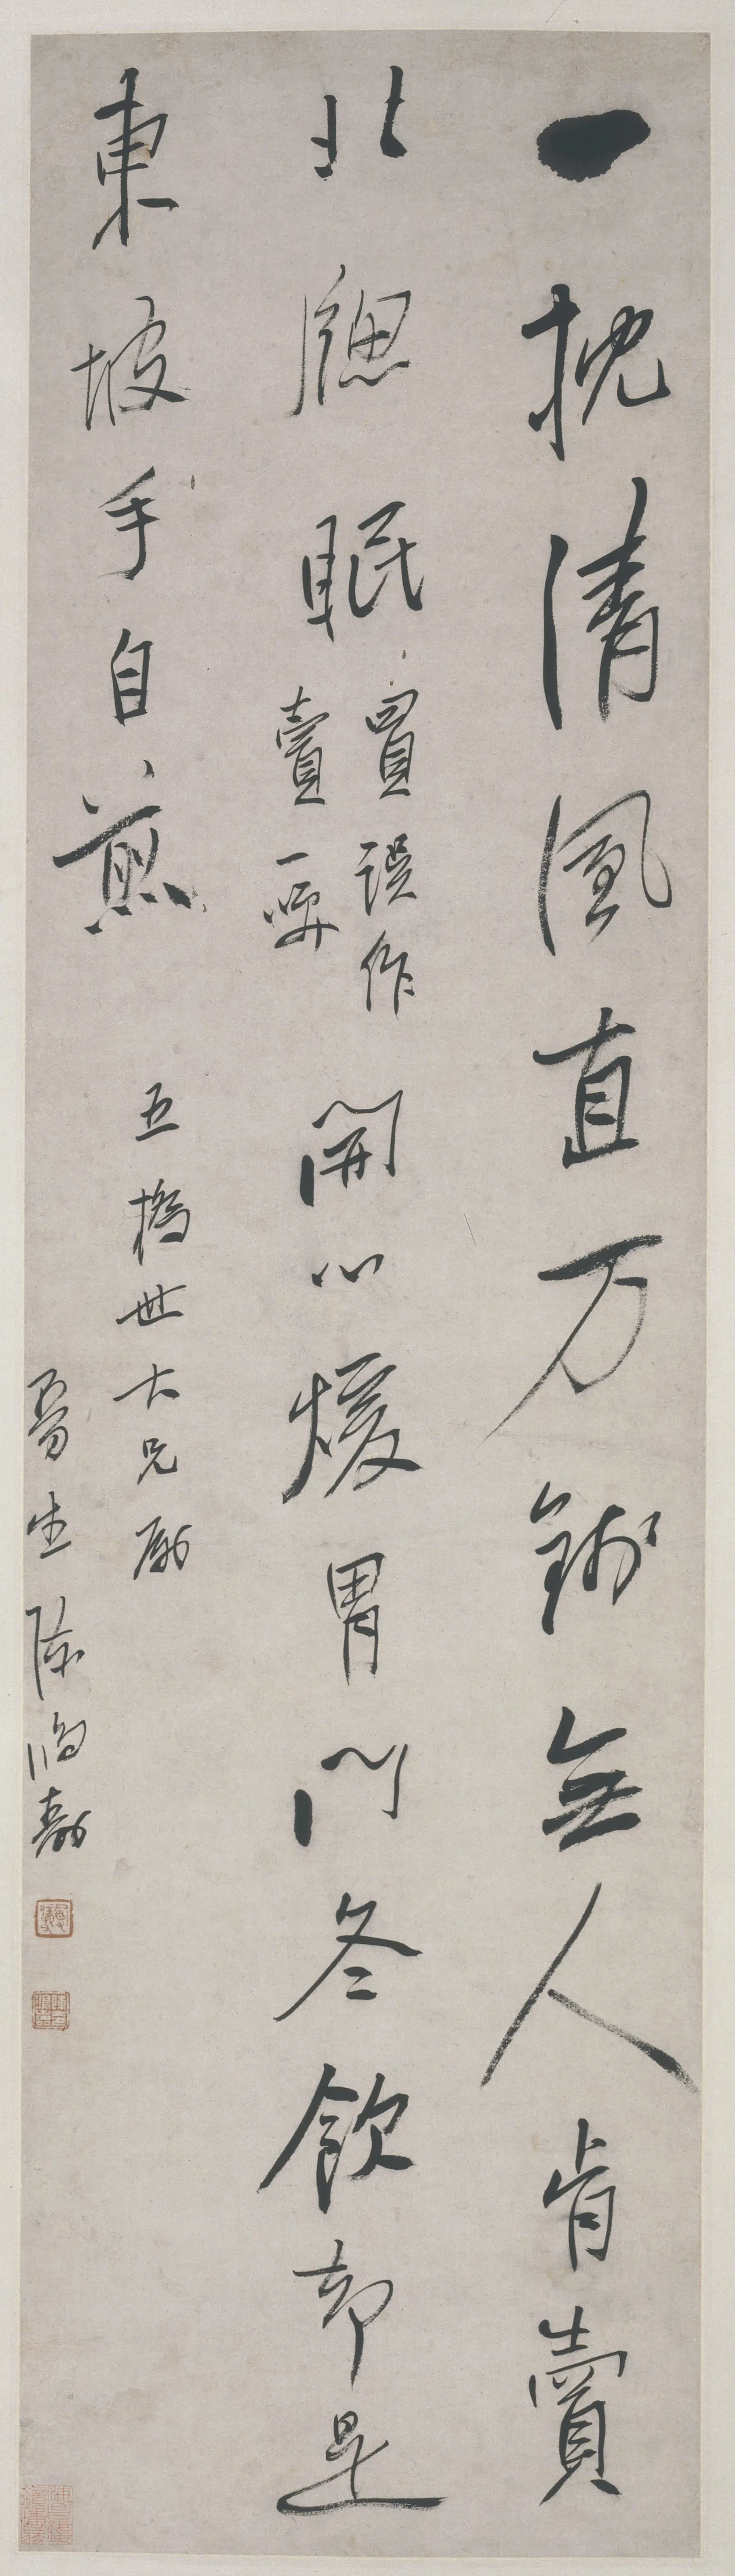 一枕清風直万錢無人肯賣
北牕眠
買誤作
賣一咲
開心煖胃門冬飲却是
東坡手自煎
五橋世大兄屬
曼生陳鴻壽